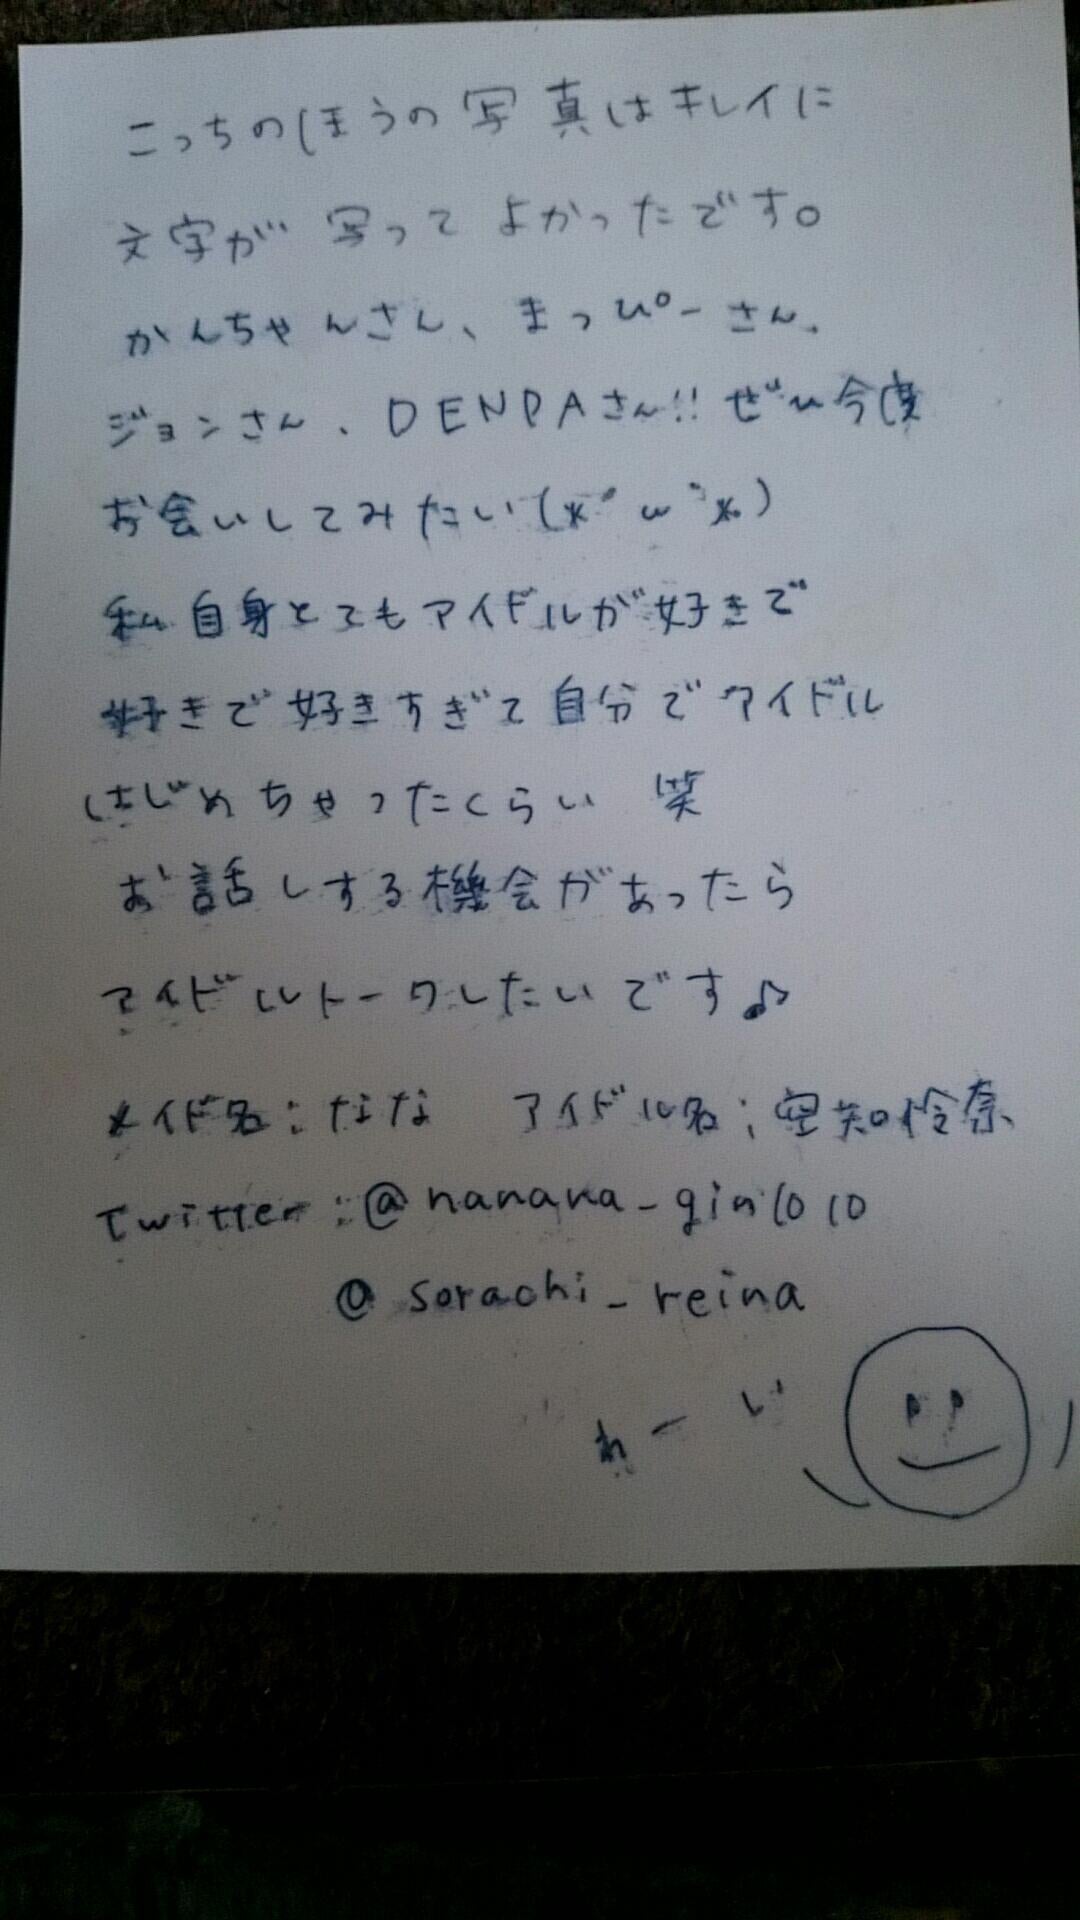 こっちのほうの写真はキレイに
文字が写ってよかったです。
かんちゃんさん、まっぴーさん、
ジョンさん、DENPAさん!! ぜひ今度
お会いしてみたい(*´ω`*)
私自身とてもアイドルが好きで
好きで好きすぎて自分でアイドル
はじめちゃったくらい 笑
お話しする機会があったら
アイドルトークしたいです♪
メイド名:なな アイドル名:空知怜奈
Twitter:@nanana_gin1010
@sorachi_reina
れーい